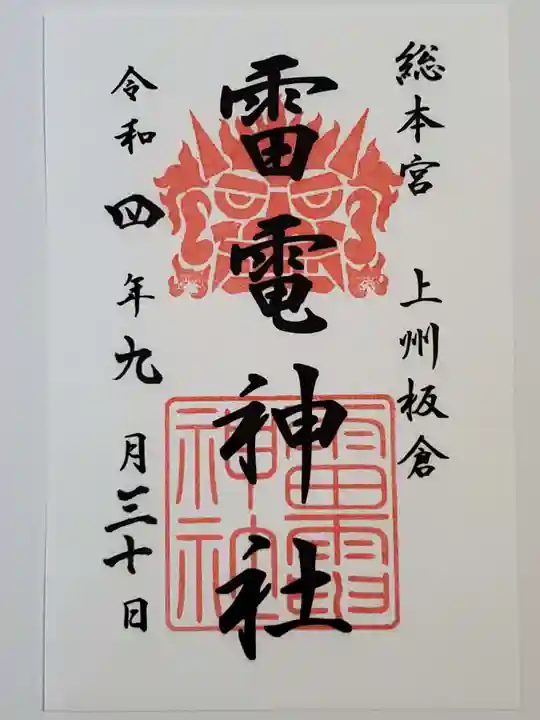 総本宮 上州板倉
雷電神社
令和四年九月三十日
雷電
神社